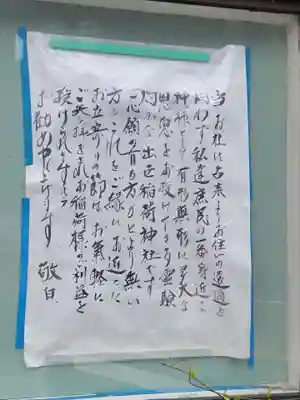 当お社は古来よりお住いの遠近を
問わず私達庶民の一番身近な
神様として有形無形に多大な
恩恵をお授け下さる霊験
出世稲荷神社です
心願の有る方もとより無い
方もこれをご縁にお近くに
お立寄りの節はお気軽に
ご参拝されお稲荷様の利益を
授けられますよう
お勧め申し上げます 敬白